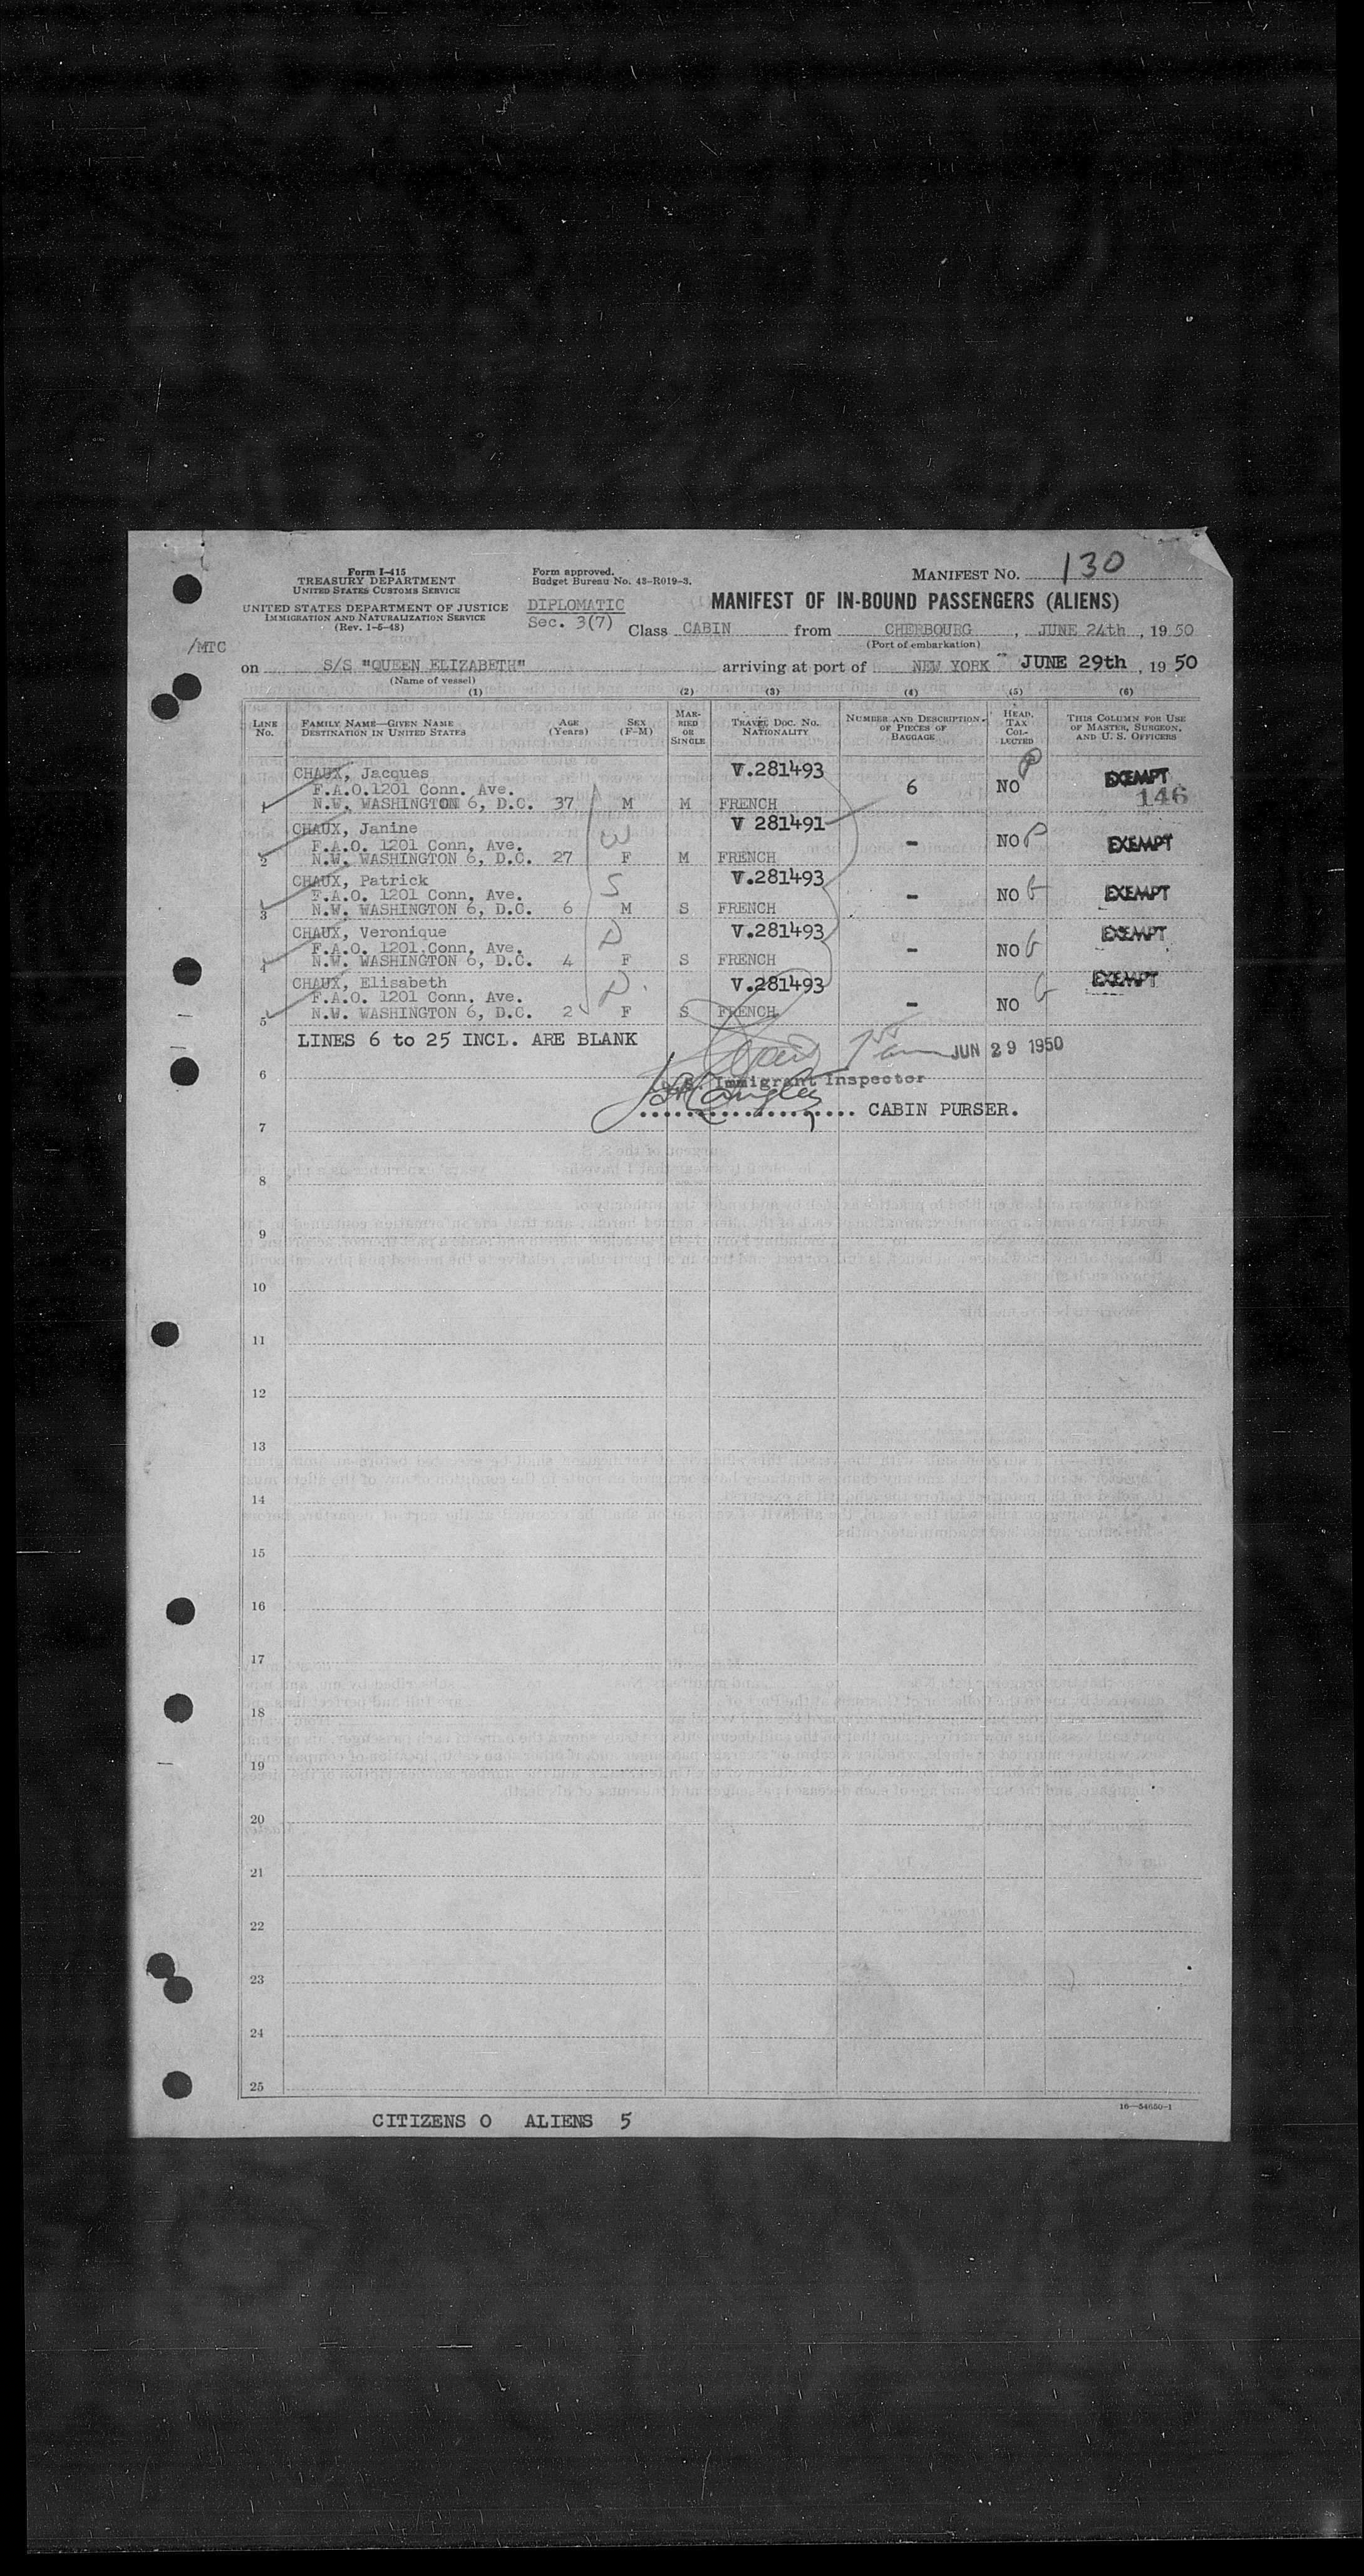 Form I-415
TREASURY DEPARTMENT
UNITED STATES CUSTOMS SERVICE
UNITED STATES DEPARTMENT OF JUSTICE
IMMIGRATION AND NATURALIZATION SERVICE
(Rev. 1-5-48)
Form approved.
Budget Bureau No. 43-R019-3.
DIPLOMATIC
Sec. 3(7)
MANIFEST NO. 130
MANIFEST OF IN-BOUND PASSENGERS (ALIENS)
Class CABIN from CHERBOURG, JUNE 24th, 1950
(Port of embarkation)
/MTC
on S/S "QUEEN ELIZABETH" arriving at port of NEW YORK JUNE 29th, 1950
(Name of vessel)
(1) (2) (3) (4) (5) (6)
LINE NO. FAMILY NAME—GIVEN NAME DESTINATION IN UNITED STATES AGE (Years) SEX (F-M) MARRIED OR SINGLE TRAVEL DOC. NO. NATIONALITY NUMBER AND DESCRIPTION OF PIECES OF BAGGAGE HEAD TAX COLLECTED THIS COLUMN FOR USE OF MASTER, SURGEON, AND U. S. OFFICERS
CHAUX, Jacques V.281493
F.A.O.1201 Conn. Ave. 6 NO P EXEMPT
1 N.W. WASHINGTON 6, D.C. 37 M M FRENCH 146
CHAUX, Janine V 281491
F.A.O. 1201 Conn, Ave. W - NO P EXEMPT
2 N.W. WASHINGTON 6, D.C. 27 F M FRENCH
CHAUX, Patrick V.281493
F.A.O. 1201 Conn, Ave. S - NO G EXEMPT
3 N.W. WASHINGTON 6, D.C. 6 M S FRENCH
CHAUX, Veronique V.281493 EXEMPT
F.A.O. 1201 Conn, Ave. D - NO G
4 N.W. WASHINGTON 6, D.C. 4 F S FRENCH
CHAUX, Elisabeth V.281493 EXEMPT
F.A.O. 1201 Conn. Ave. D - NO G
5 N.W. WASHINGTON 6, D.C. 2 F S FRENCH
LINES 6 to 25 INCL. ARE BLANK
JUN 29 1950
6
Immigrant Inspector
CABIN PURSER.
7
8
9
10
11
12
13
14
15
16
17
18
19
20
21
22
23
24
25
16—54650-1
CITIZENS 0 ALIENS 5